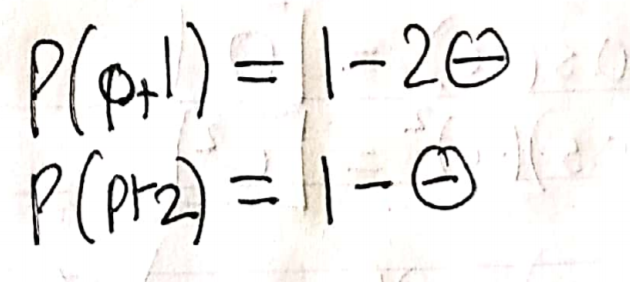 P(p+1) = 1-2θ
P(p+2) = 1-θ